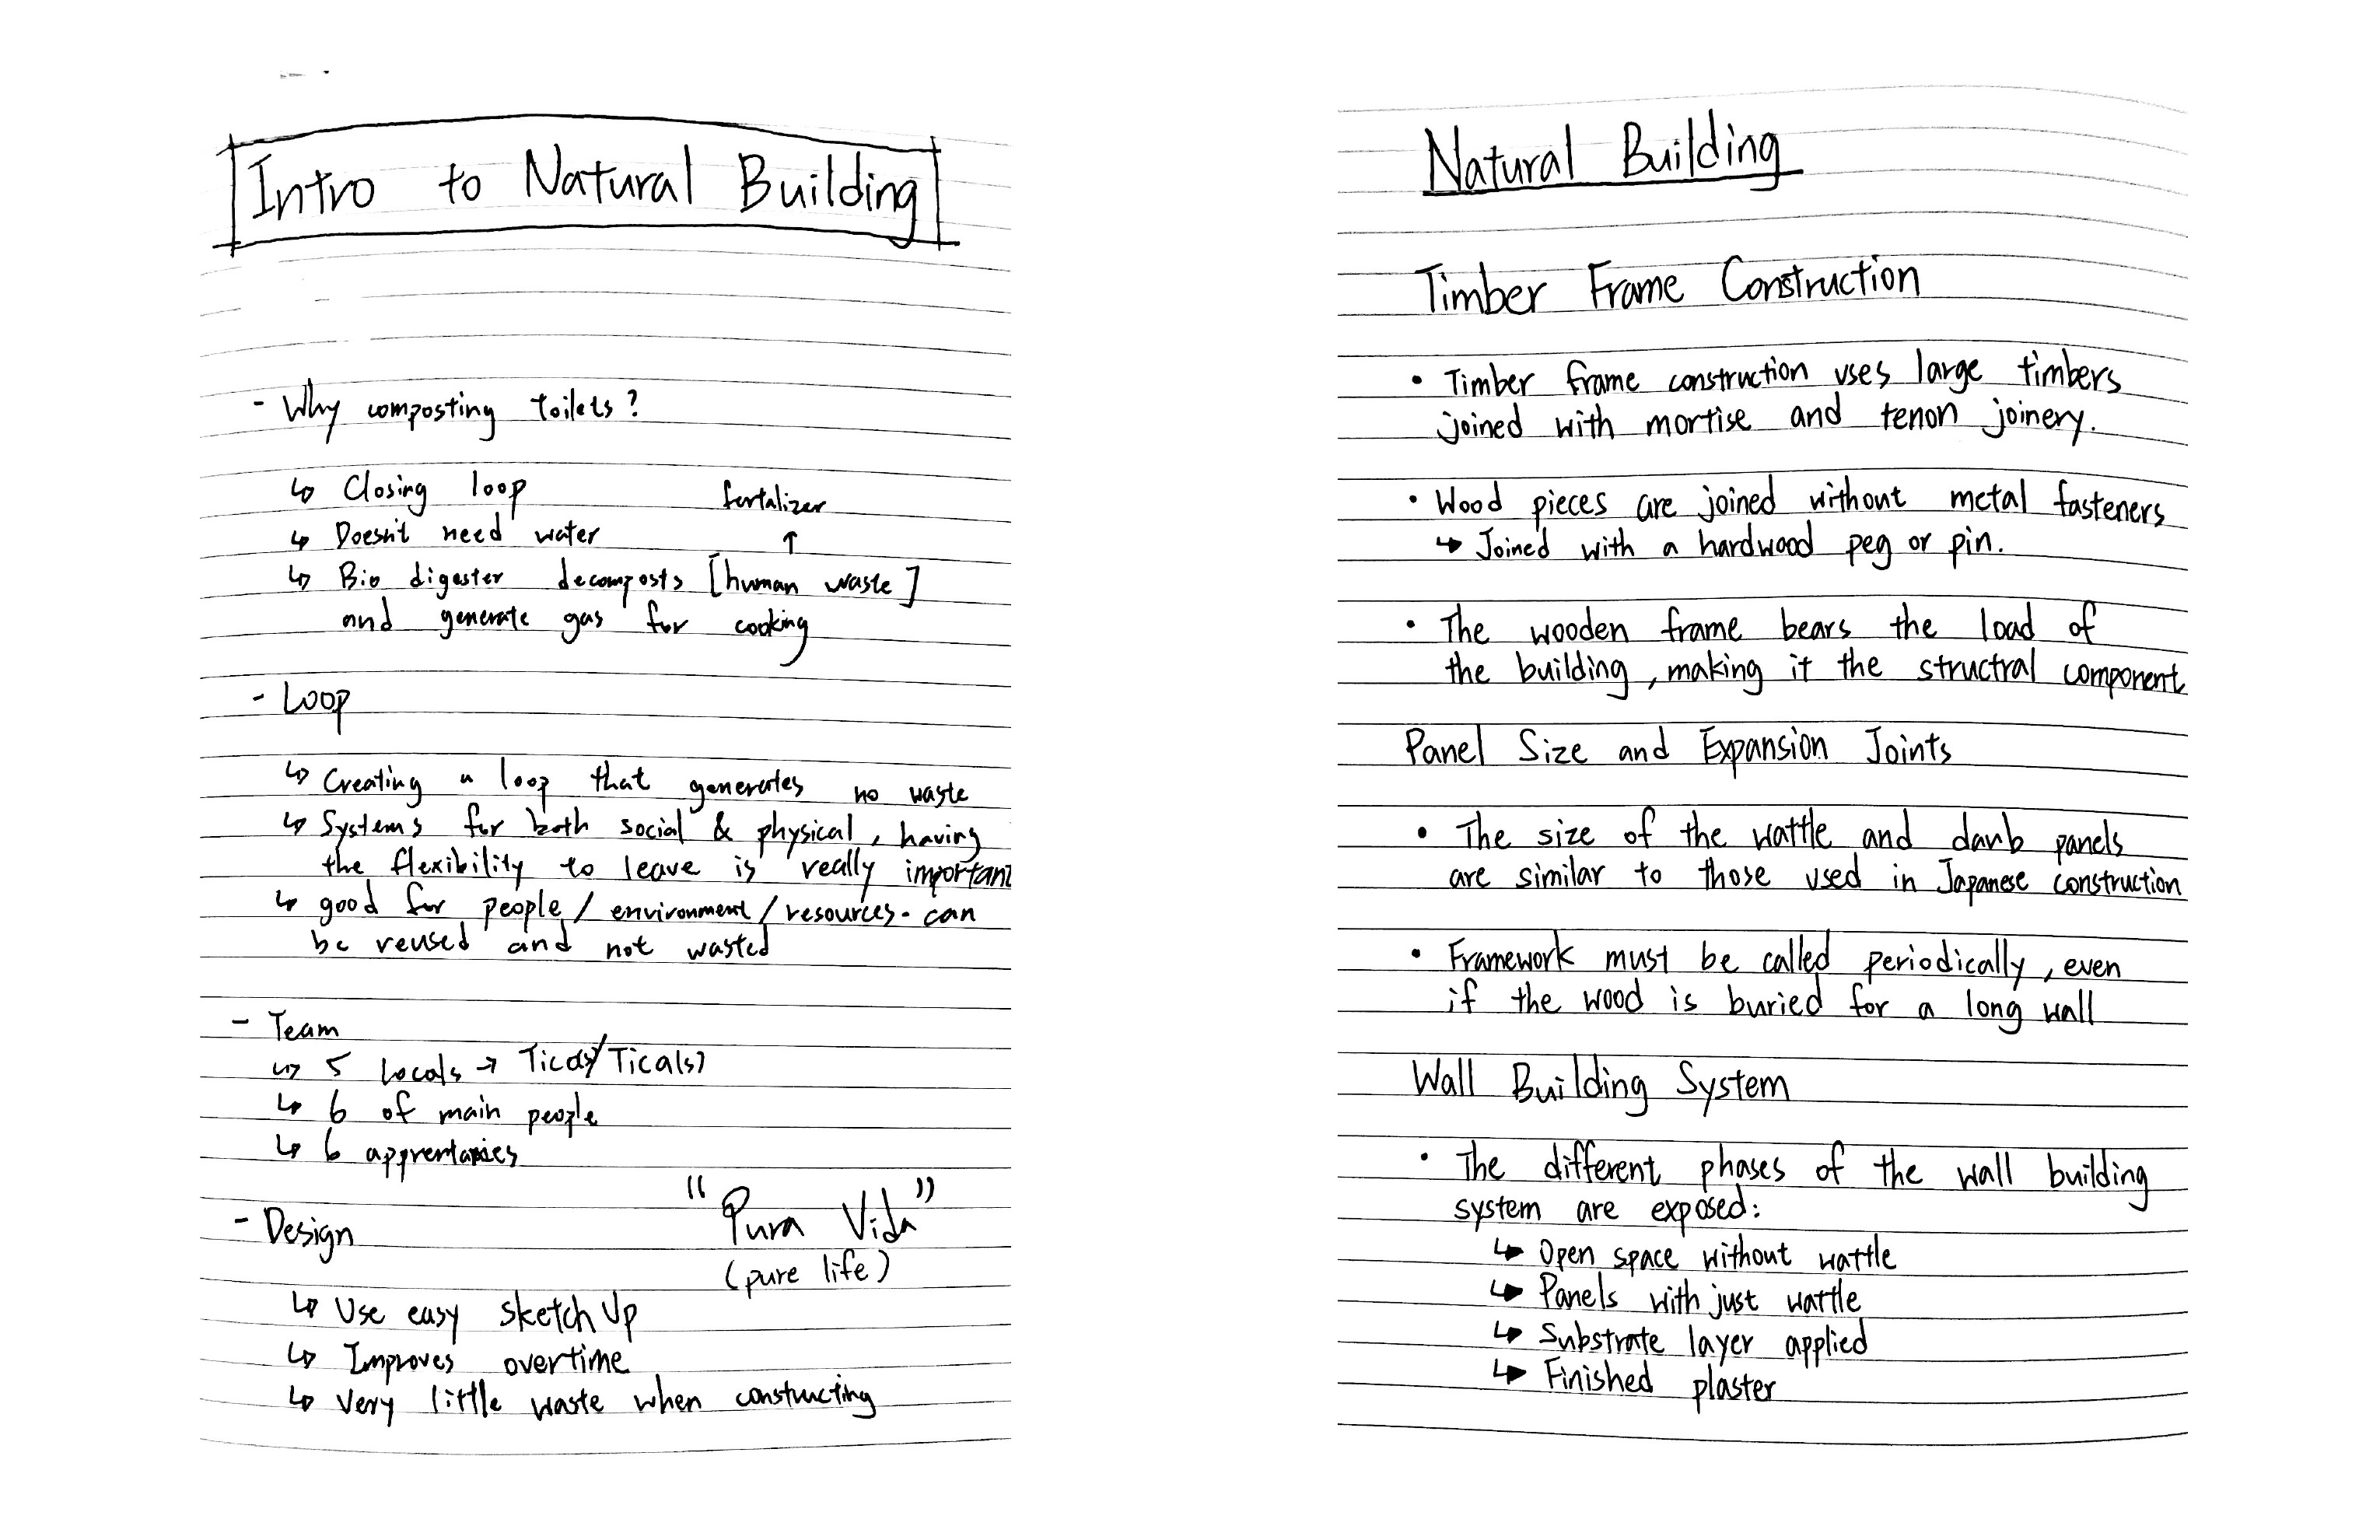 Intro to Natural Building
- Why composting toilets?
↳ Closing loop
fertalizer
↑
↳ Doesn't need water
↳ Bio digester decomposts [human waste]
and generate gas for cooking
- Loop
↳ Creating a loop that generates no waste
↳ Systems for both social & physical, having
the flexibility to leave is really important
↳ good for people/environment/resources. can
be reused and not wasted
- Team
↳ 5 Locals → Tico(s)/Tica(s)
↳ 6 of main people
↳ 6
- Design
"Pura Vida"
(pure life)
↳ Use easy sketch Up
↳ Improves overtime
↳ Very little waste when constructing
Natural Building
Timber Frame Construction
• Timber frame construction uses large timbers
joined with mortise and tenon joinery.
• Wood pieces are joined without metal fasteners
↳ Joined with a hardwood peg or pin.
• The wooden frame bears the load of
the building, making it the structral component
Panel Size and Expansion Joints
• The size of the wattle and daub panels
are similar to those used in Japanese construction
• Framework must be called periodically, even
if the wood is buried for a long wall
Wall Building System
• The different phases of the wall building
system are exposed:
↳ Open space without wattle
↳ Panels with just wattle
↳ Substrate layer applied
↳ Finished plaster